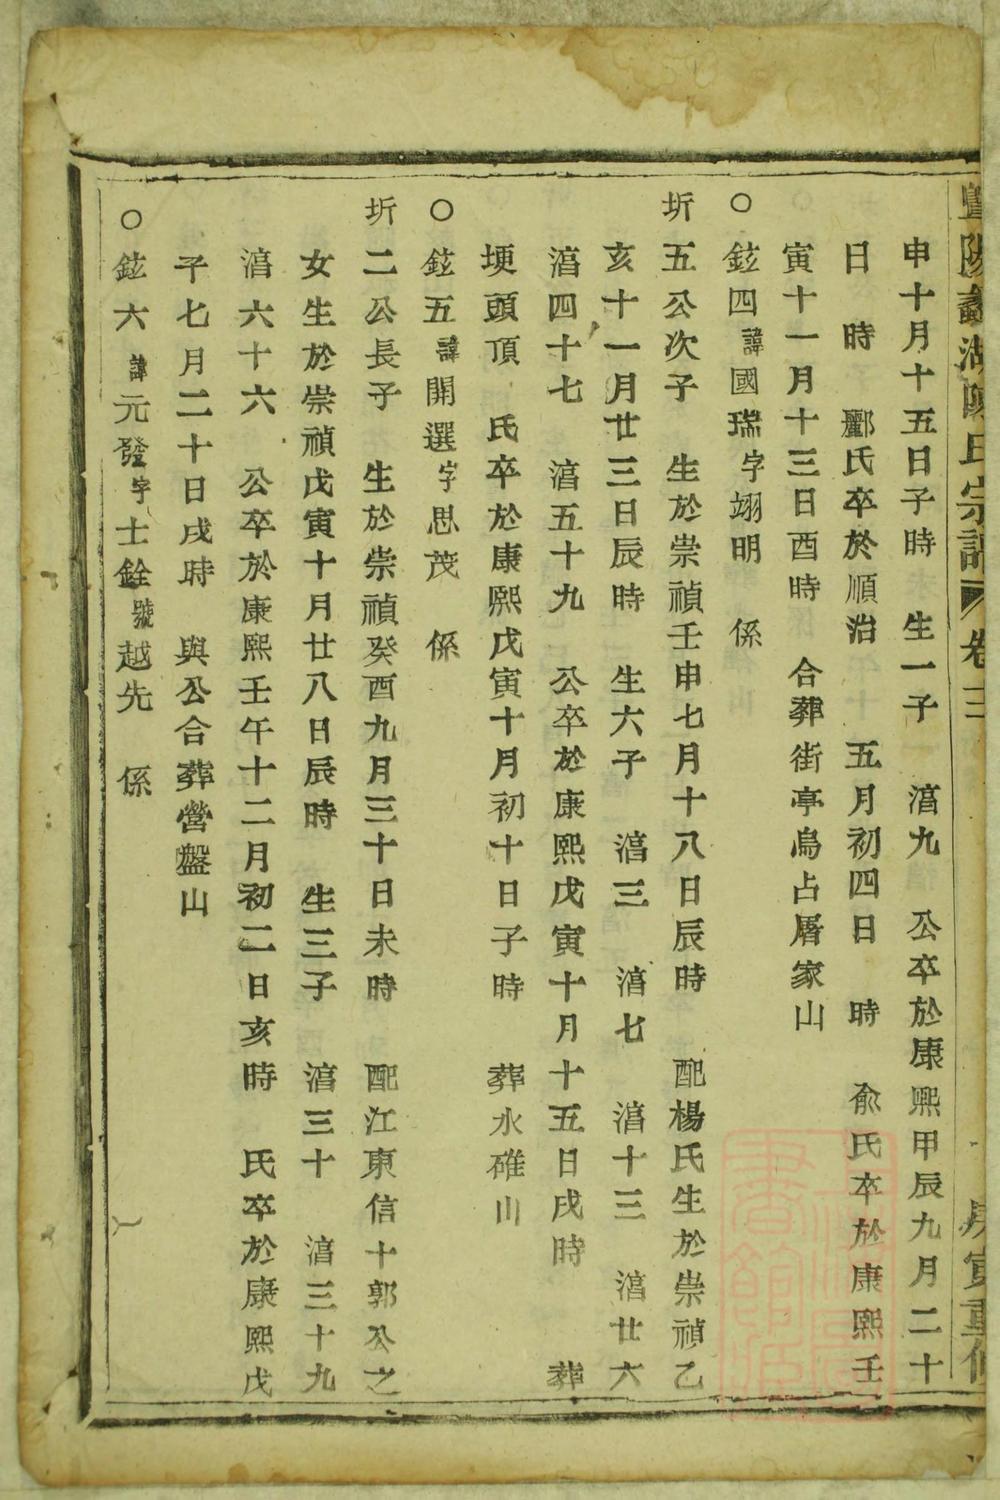 暨陽蠡湖陳氏宗譜 卷三 庚寅重修
申十月十五日子時 生一子 湻九 公卒於康熙甲辰九月二十
日 時 酈氏卒於順治 五月初四日 時 俞氏卒於康熙壬
寅十一月十三日酉時 合葬街亭烏占屠家山
○鉉四諱國瑞字翊明 係
圻五公次子 生於崇禎壬申七月十八日辰時 配楊氏生於崇禎乙
亥十一月廿三日辰時 生六子 湻三 湻七 湻十三 湻廿六
湻四十七 湻五十九 公卒於康熙戊寅十月十五日戌時 葬
埂頭頂 氏卒於康熙戊寅十月初十日子時 葬水碓山
○鉉五諱開選字思茂 係
圻二公長子 生於崇禎癸酉九月三十日未時 配江東信十郭公之
女生於崇禎戊寅十月廿八日辰時 生三子 湻三十 湻三十九
湻六十六 公卒於康熙壬午十二月初二日亥時 氏卒於康熙戊
子七月二十日戌時 與公合葬營盤山
○鉉六諱元發字士銓號越先 係